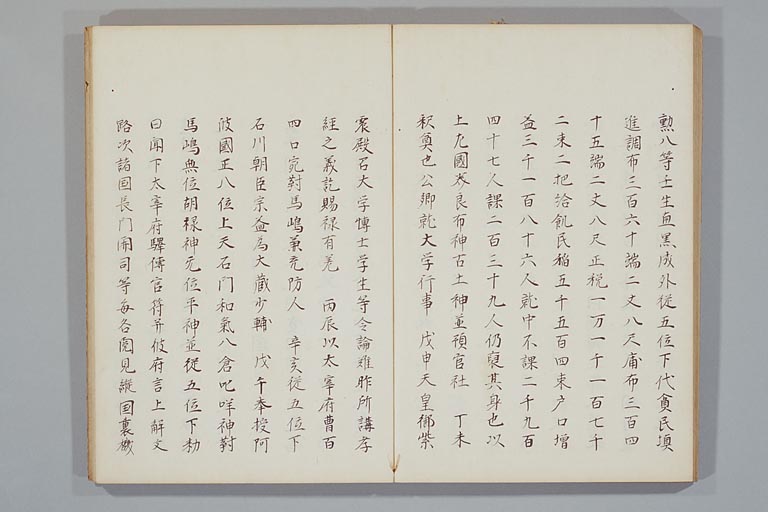 勲八等壬生直黒成外従五位下代貧民填
進調布三百六十端二丈八尺庸布三百四
十五端二丈八尺正税一万一千一百七千
二束二把給飢民稲五千五百四束戸口増
益三千一百八十六人就中不課二千九百
四十七人課二百三十九人仍襃其身也以
上九國桼良布神古土神並預官社　丁未
釈奠也公卿就大学行事　戊申天皇御紫
宸殿召大学博士学生等令論難昨所講孝
経之義訖賜禄有差　丙辰以太宰府曹百
四口宛對馬嶋兼充防人　辛亥従五位下
石川朝臣宗益為大蔵少輔　戊午奉授阿
波國正八位上天石門和氣八倉比咩神對
馬嶋無位胡禄神无位平神並従五位下勅
曰聞下太宰府驛傳官符并彼府言上解文
路次諸国長門関司等毎各閲見縦国裏機